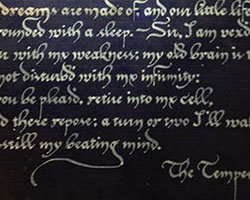 dreams are made of and our little life
ounded with a sleep. —Sir, I am vexd
with my weakness; my old brain is
not disturbd with my infirmity:
ou be pleasd, retire into my cell,
d there repose: a turn or two I'll wal
still my beating mind.
The Tempe